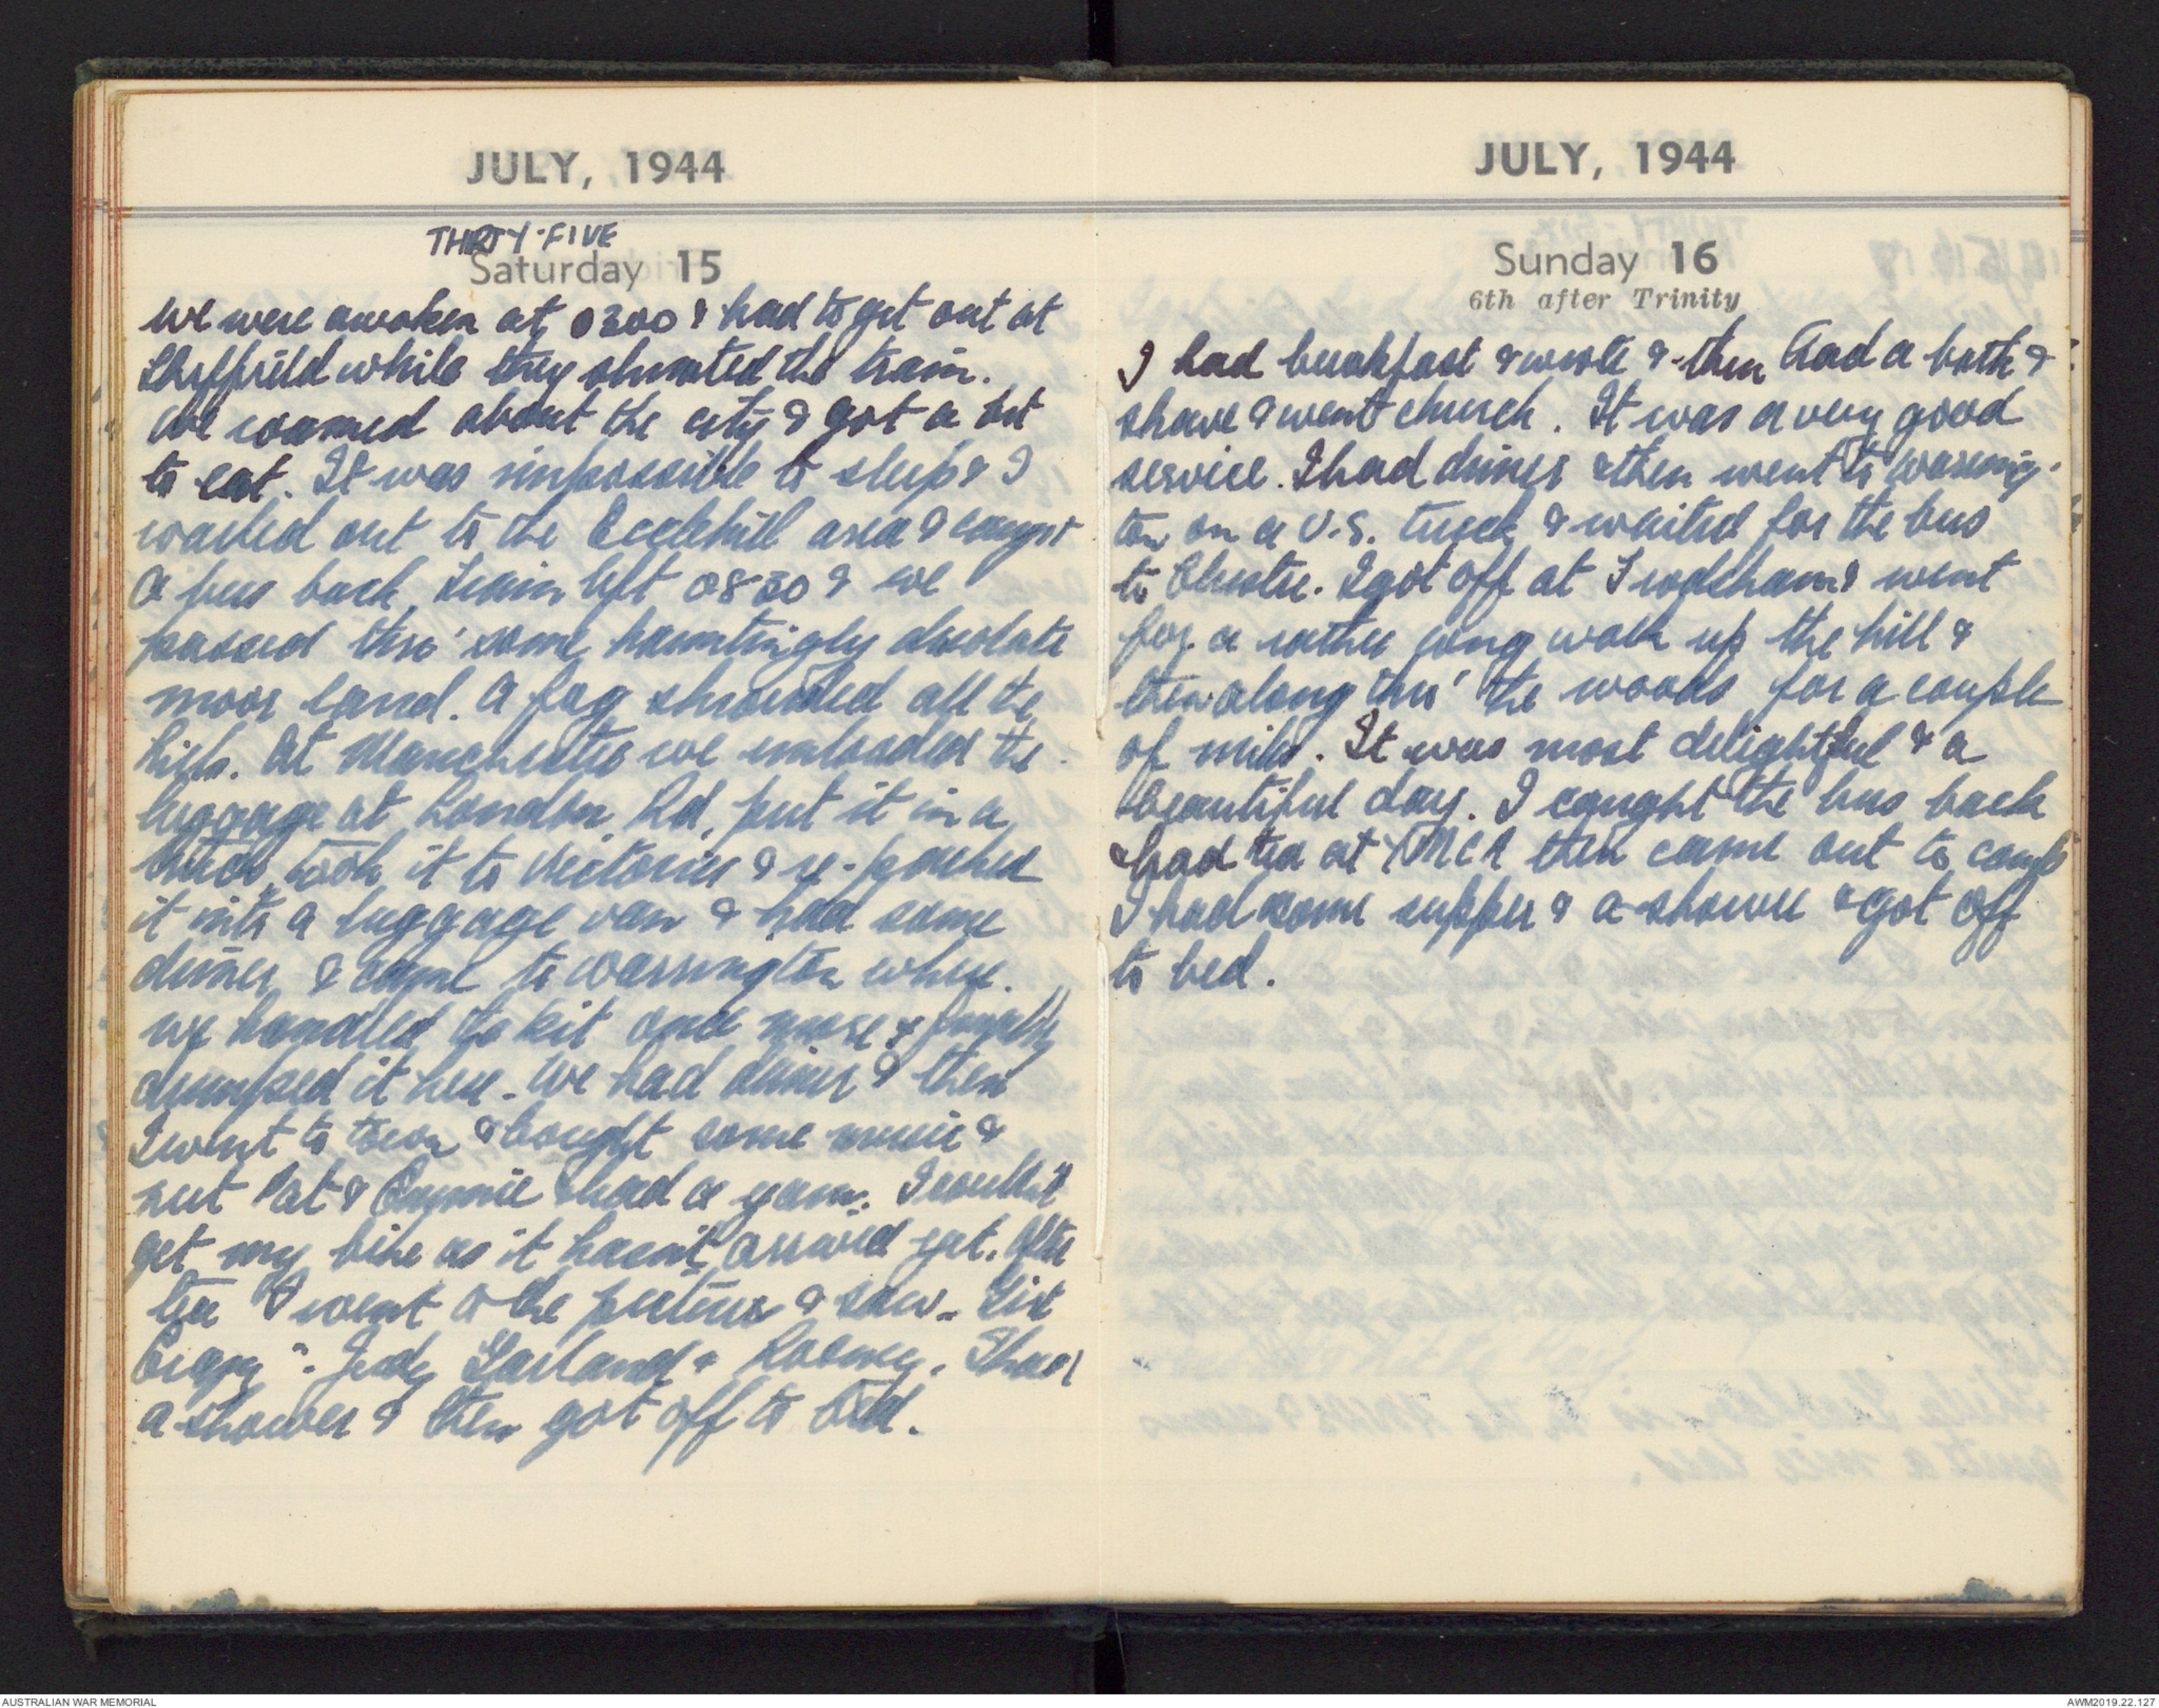 JULY, 1944
THIRTY-FIVE
Saturday 15
We were awoken at 0300 & had to get out at
Sheffield while they shunted the train.
We roamed about the city & got a bit
to eat. It was impossible to sleep & I
walked out to the area & caught
a bus back. Train left 0850 & we
passed thro' some hauntingly desolate
moor land. A fog shrouded all the
hills. At Manchester we unloaded the
luggage at London Rd, put it in a
truck, took it to Victoria & re-packed
it into a luggage van & had some
dinner & came to Warrington where
we handled the kit once more & finally
dumped it here. We had dinner & then
I went to town & bought some music &
met Pat & Connie & had a yarn. I couldn't
get my bike as it hasn't arrived yet. After
tea I went to the pictures & saw "Girl
Crazy". Judy Garland & Rooney. I had
a shower & then got off to bed.
JULY, 1944
Sunday 16
6th after Trinity
I had breakfast & wrote & then had a bath &
shave & went church. It was a very good
service. I had dinner & then went to Warring-
ton on a U.S. truck & waited for the bus
to Chester. I got off at Frodsham & went
for a rather long walk up the hill &
then along thro' the woods for a couple
of miles. It was most delightful & a
beautiful day. I caught the bus back
& had tea at YMCA then came out to camp
I had some supper & a shower & got off
to bed.
AUSTRALIAN WAR MEMORIAL
AWM2019.22.127